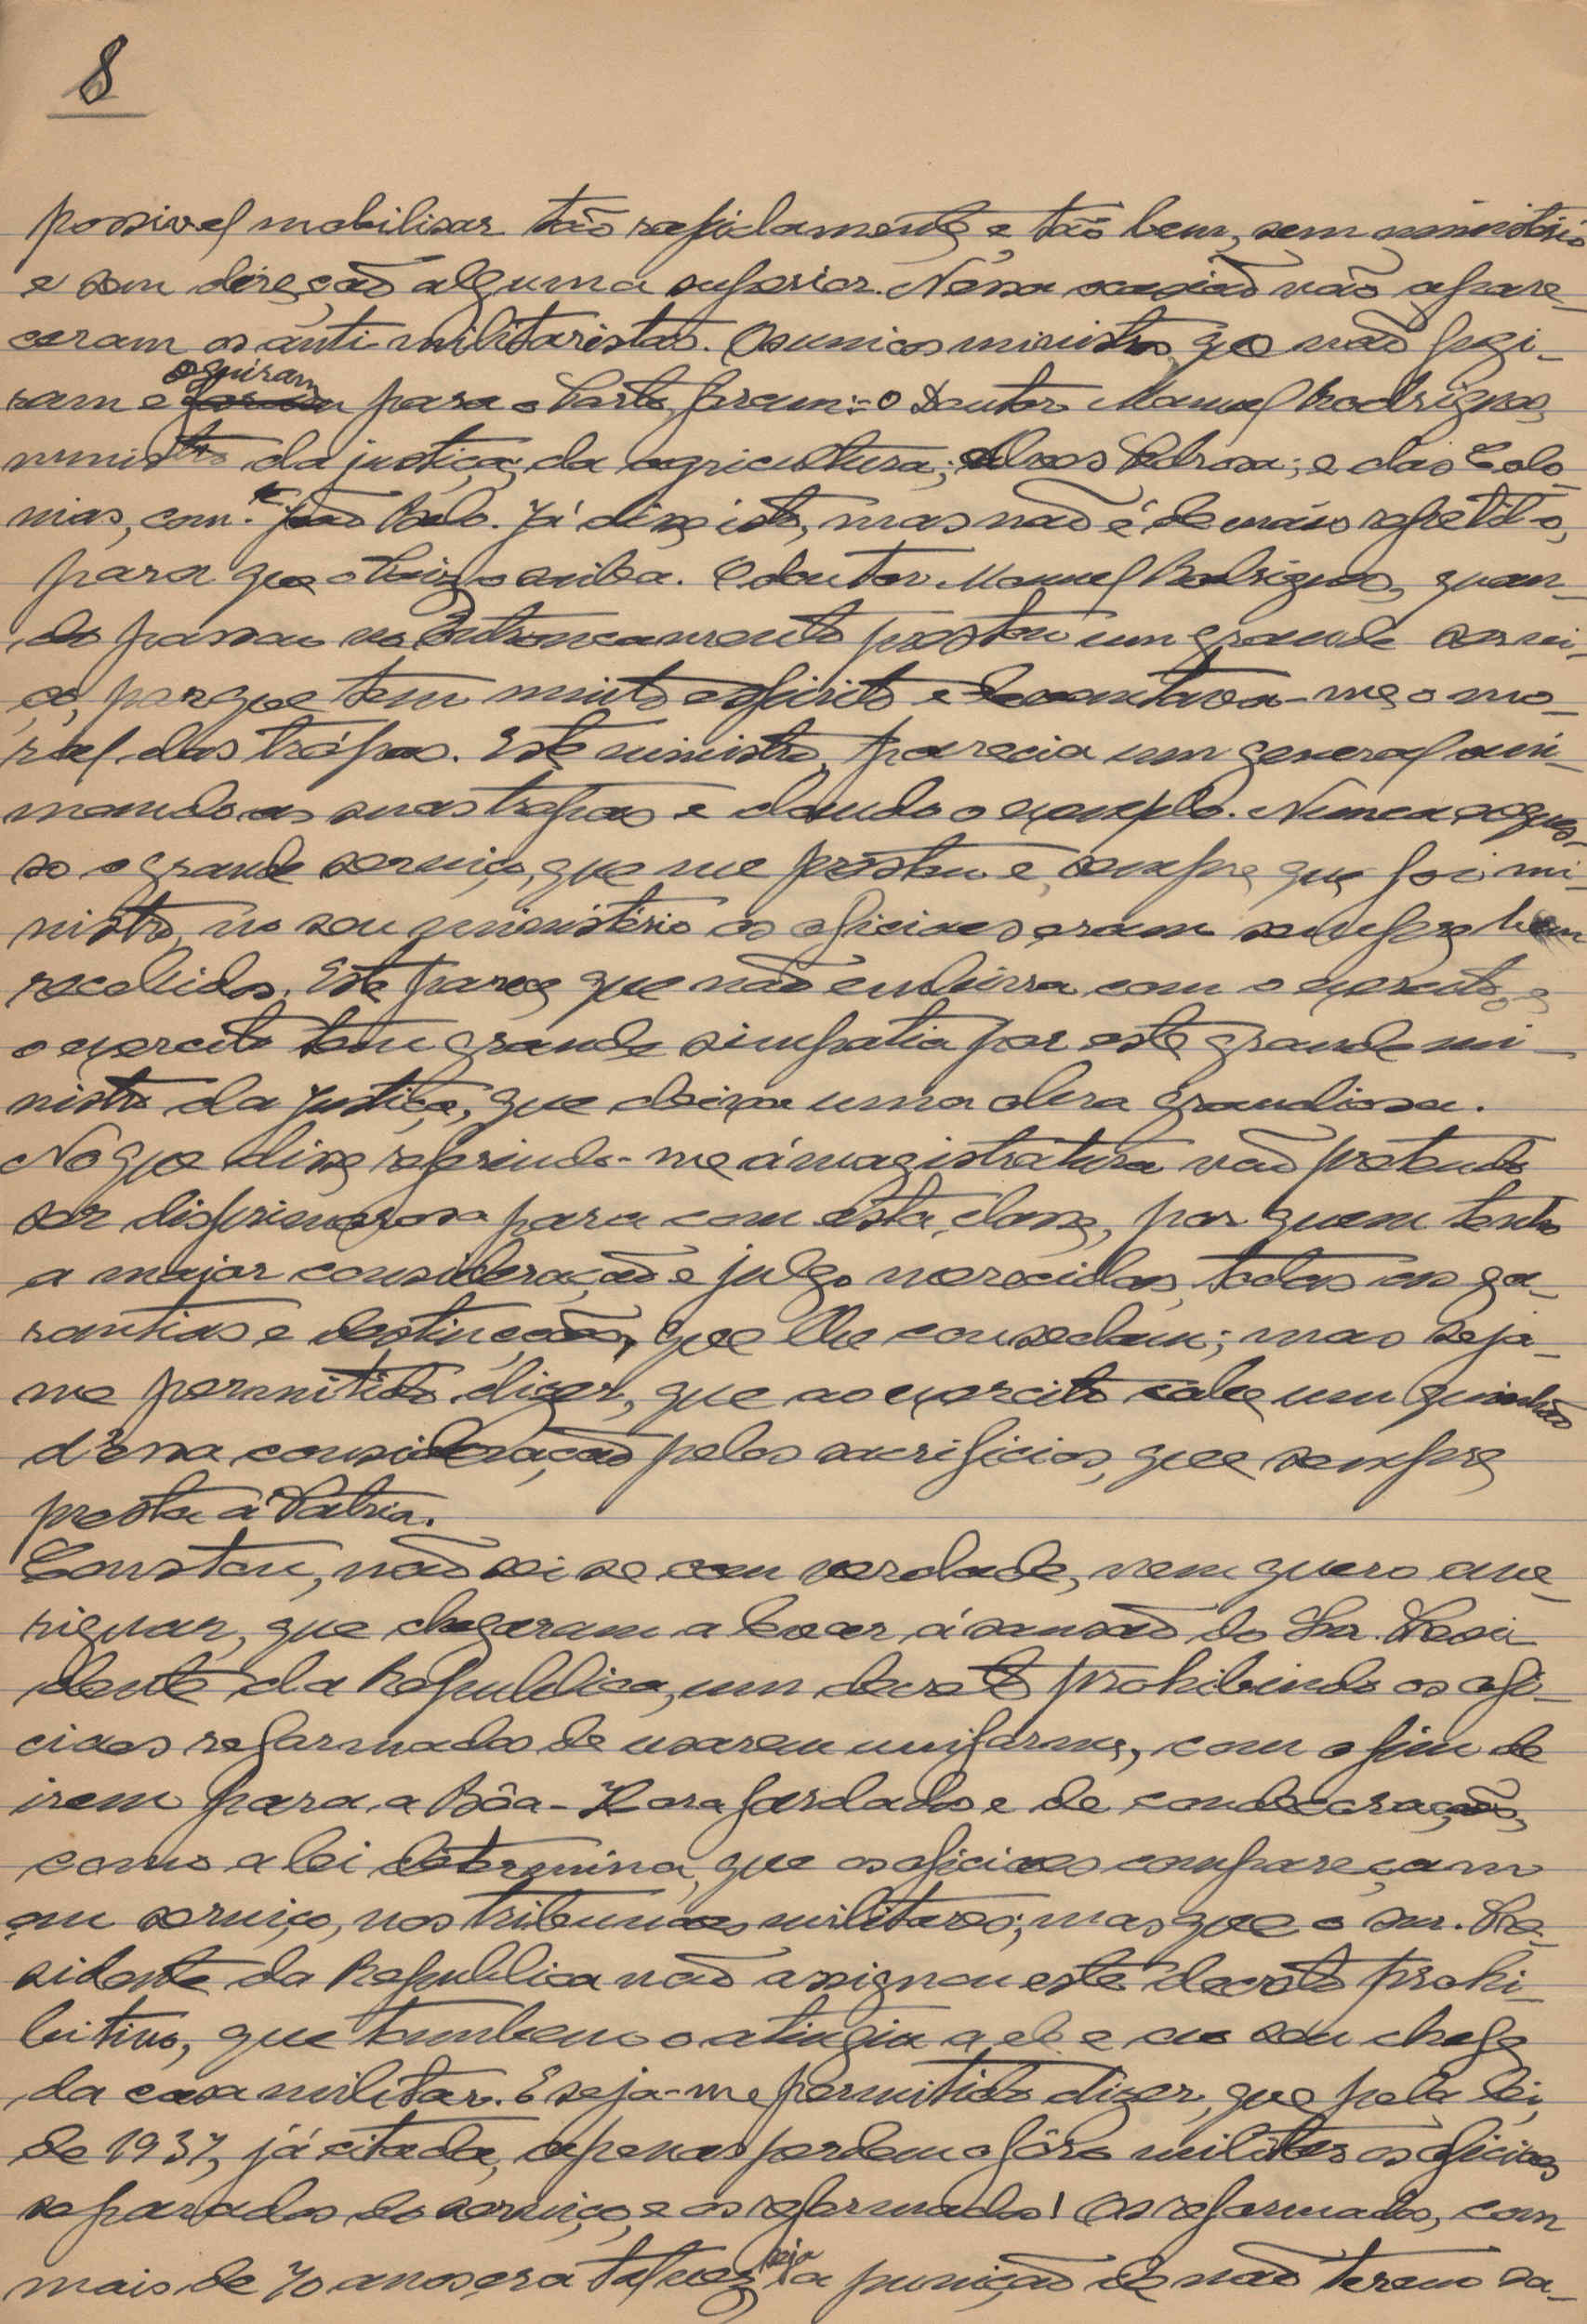 8
possivel mobilisar tão rapidamente e tão bem, sem ministério
e sem direcção alguma superior. Nessa ocasião não apare-
ceram os anti militaristas. Os unicos ministros que não fugi-
ram e seguiram para o Porto foram:- o Doutor Manuel Rodrigues,
ministro da justiça; da agricultura; Alves Pedrosa; e das Colo-
nias, com.te João Belo. Já disse isto, mas não é de mais repetil-o,
para que o Paiz o saiba. O doutor Manuel Rodrigues, quan-
do passou no Entroncamento prestou um grande servi-
ço, porque tem muito espirito e levantava-me o mo-
ral das trópas. Este ministro, parecia um general ani-
mando as suas tropas e dando o exemplo. Nunca esques-
so o grande serviço, que me prestou e, sempre que foi mi-
nistro, no seu ministério os oficiaes eram sempre bem
recebidos. Este parece que não embirra com o exercito e
o exercito tem grande simpatia por este grande mi-
nistro da justiça, que deixa uma obra grandiosa.
No que disse referindo-me á magistratura não pretendo
ser disprimorosa para com esta classe, por quem tenho
a major consideração e julgo merecidas, todas as ga-
rantias e destincções, que lhe consedam; mas seja-
me permitido dizer, que ao exercito cabe um quinhão
d'essa consideração pelos sacrificios, que sempre
presta á Patria.
Constou, não sei se com verdade, nem quero ave-
riguar, que chegaram a levar á sansão do Snr. Presi-
dente da Republica, um decreto prohibindo os ofi-
ciaes reformados de usarem uniforme, com o fim de
irem para a Bôa-Hora fardados e de condecorações,
como a lei determina, que os oficiaes compareçam
em serviço, nos tribunaes militares; mas que o snr. Pre-
sidente da Republica não assignou este decreto prohi-
bitivo, que tambem o atingia a ele e ao seu chefe
da casa militar. E seja-me permitido dizer, que pela lei
de 1937, já citada, apenas perdem o fôro militar os oficiaes
separados do serviço, e os reformados! Os reformados, com
mais de 70 anos, era talvez seja a punição de não terem sa-